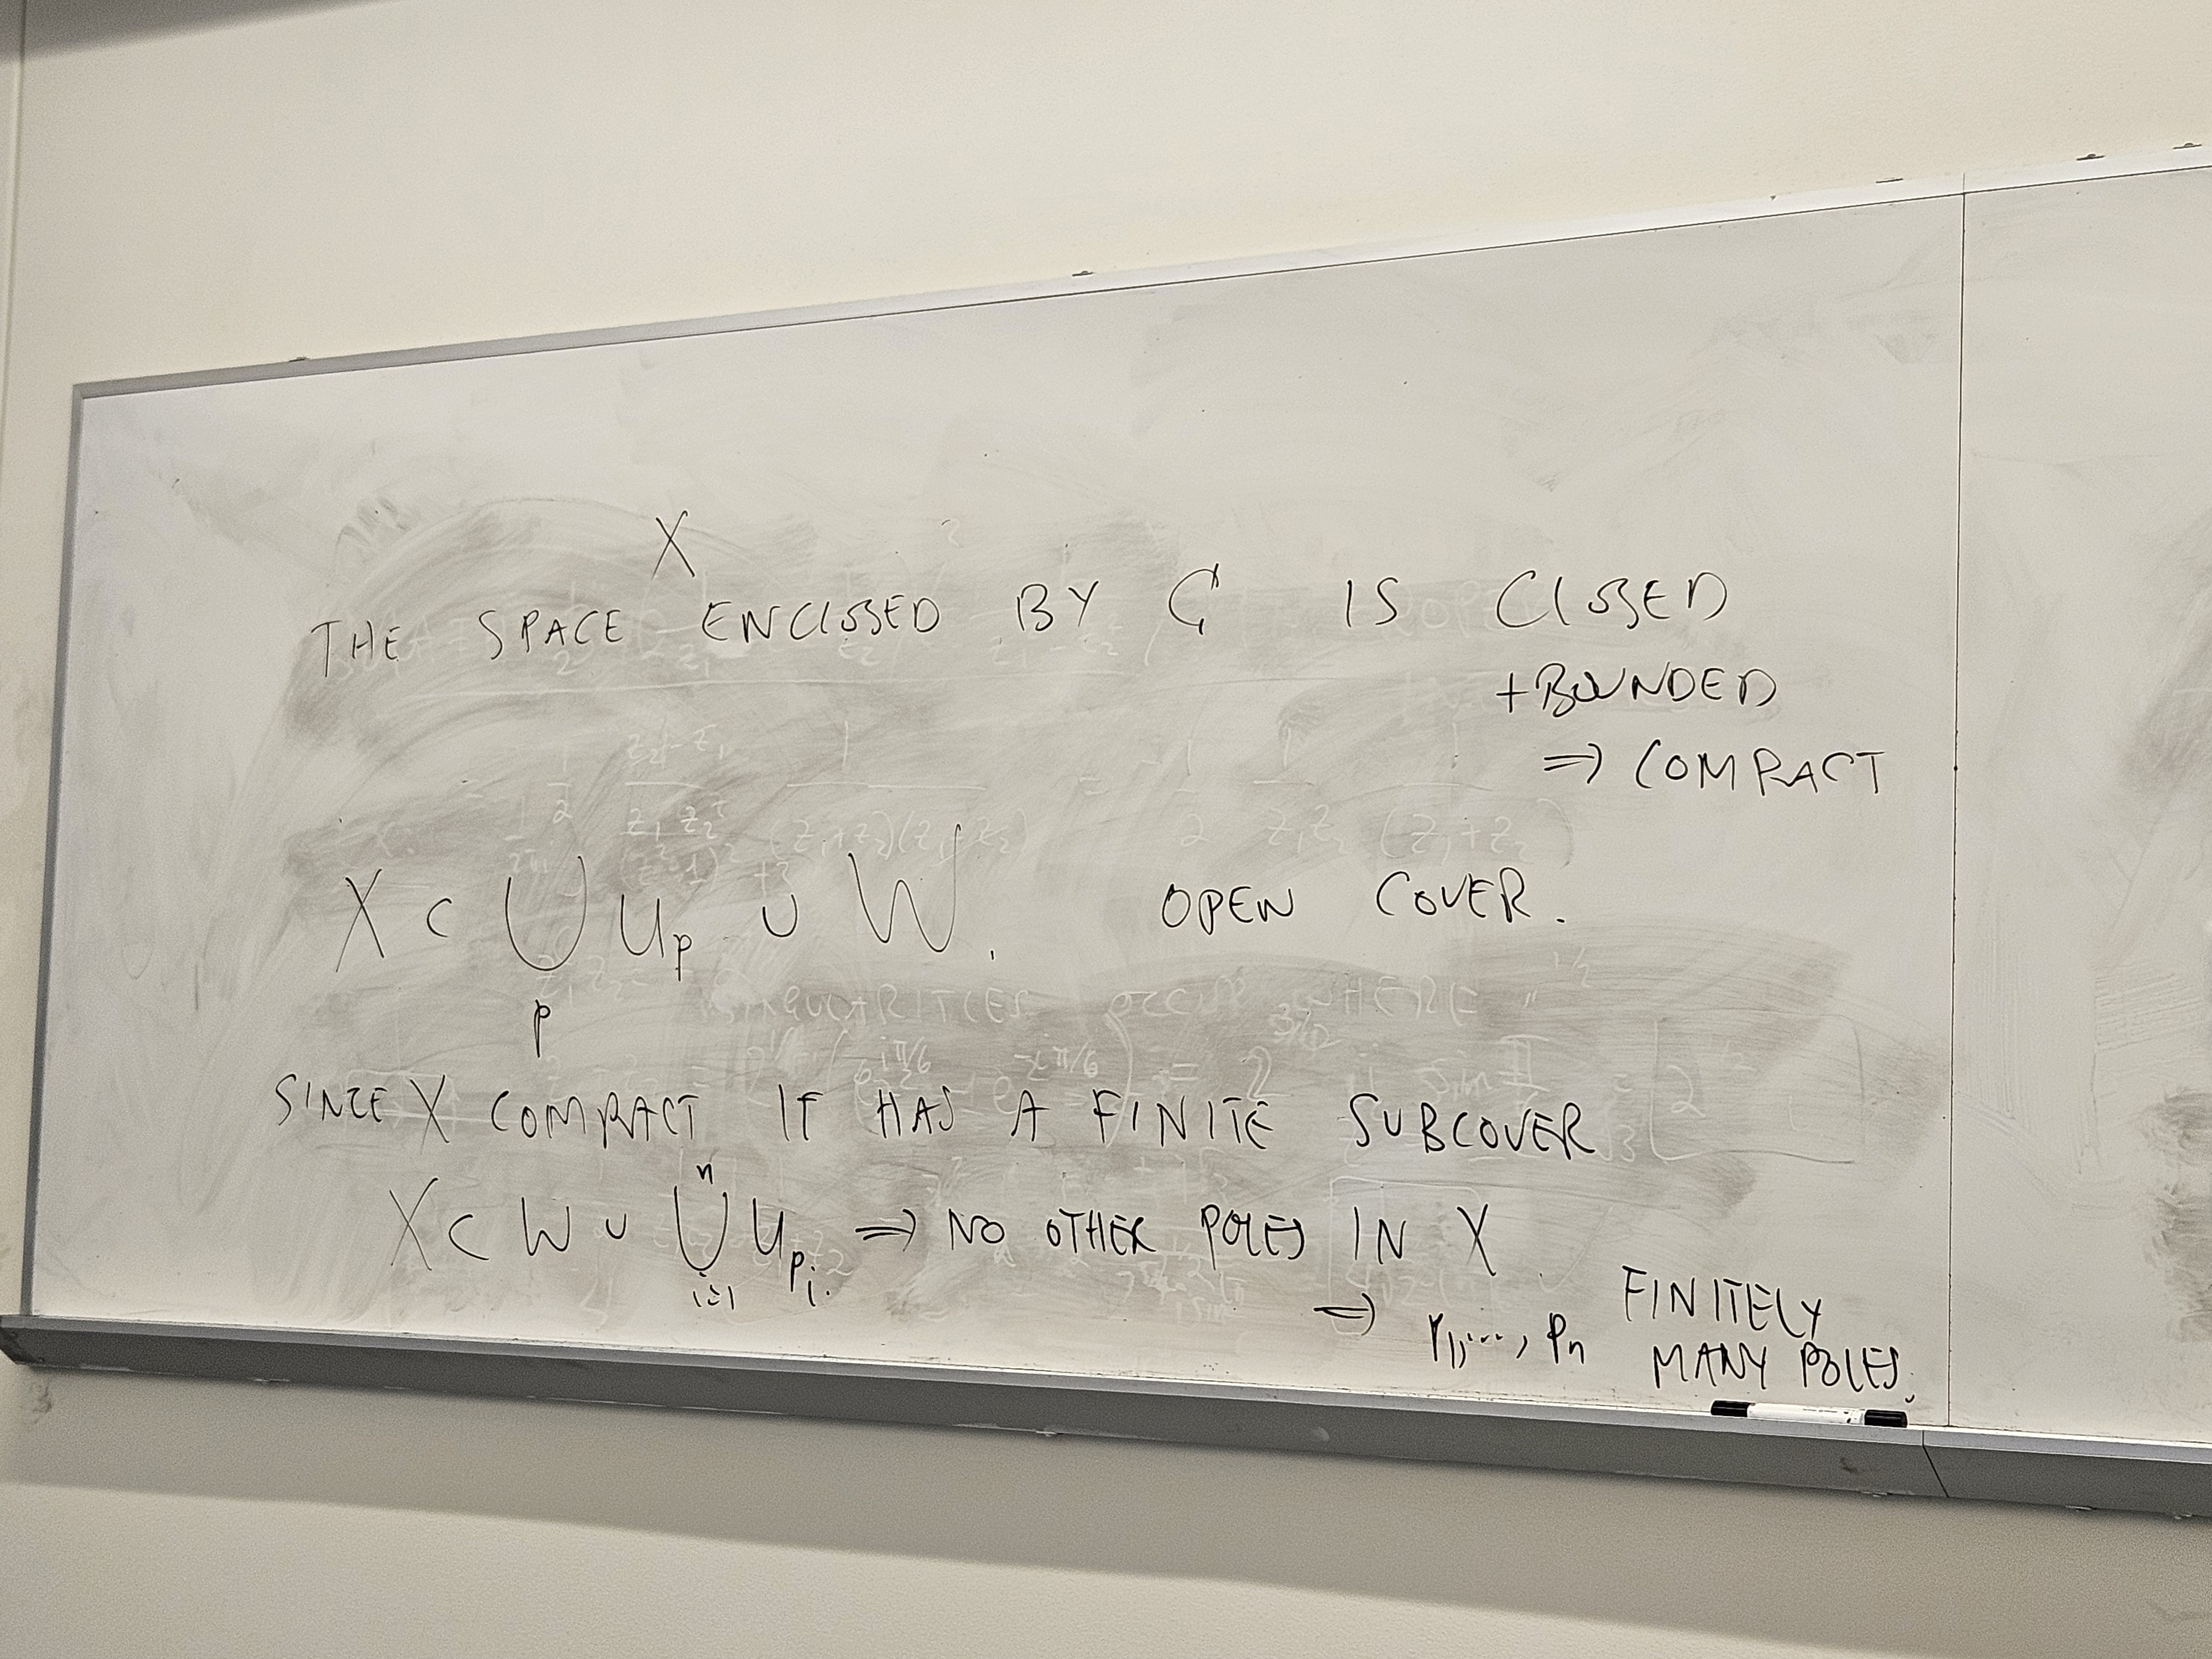 X
THE SPACE ENCLOSED BY C IS CLOSED
+BOUNDED
⇒ COMPACT
X ⊂ ⋃ U_p ∪ W. OPEN COVER.
p
SINCE X COMPACT IT HAS A FINITE SUBCOVER
n
X ⊂ W ∪ ⋃ U_{p_i} ⇒ NO OTHER POLES IN X.
i=1
⇒ p_1, ..., p_n FINITELY
MANY POLES.